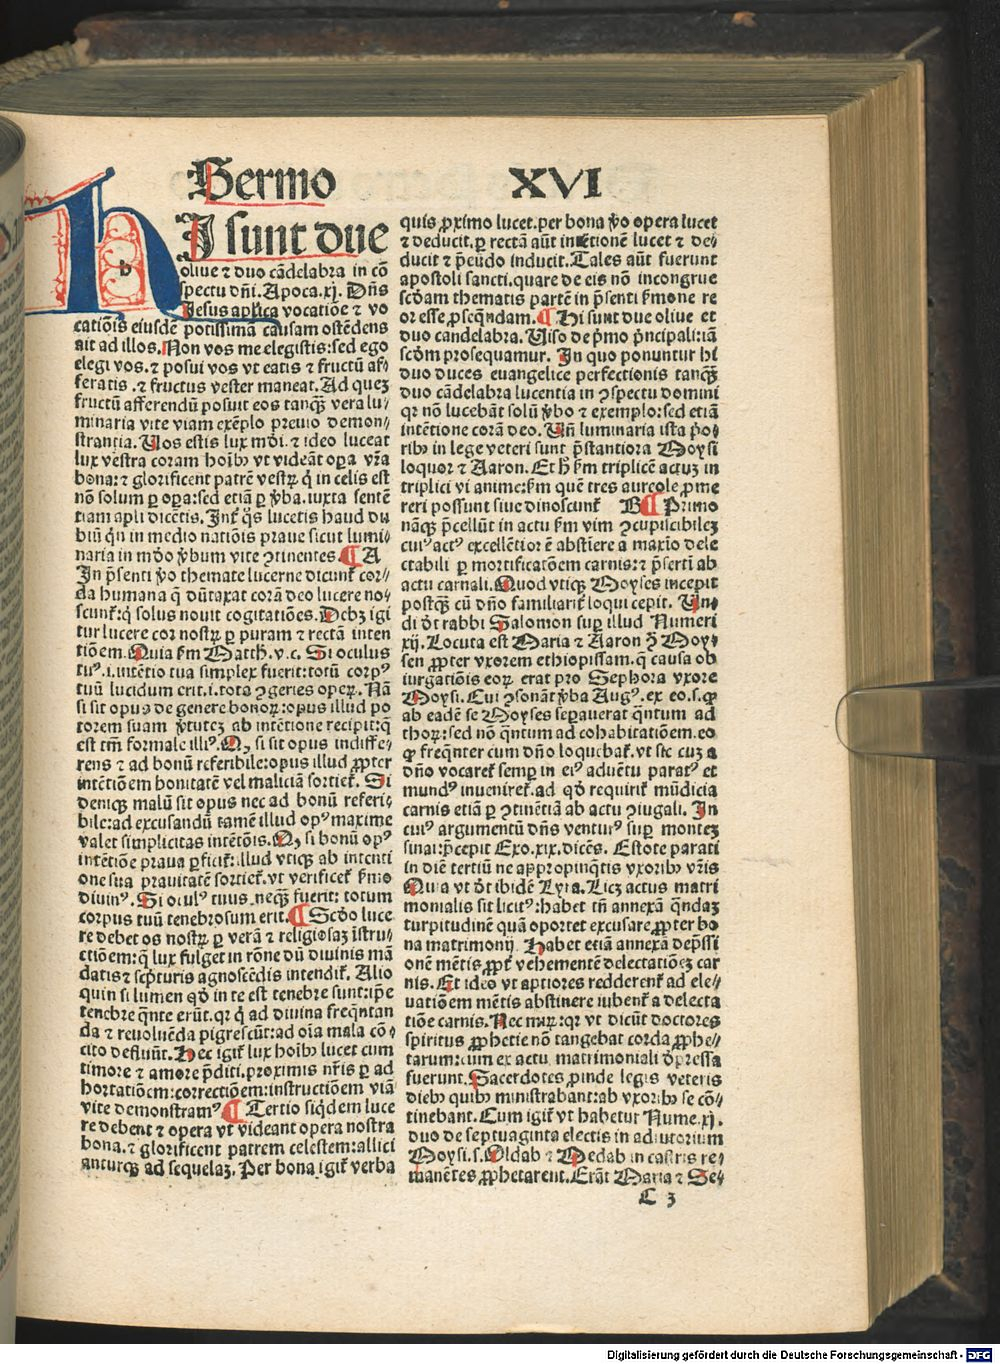 Sermo XVI
HI sunt due
oliue ⁊ duo cãdelabra in cõ
spectu dñi. Apoca.xj. Dñs
Jesus aplica vocatiõe ⁊ vo
catiõis eiusdẽ potissimã causam ostẽdens
ait ad illos. Non vos me elegistis: sed ego
elegi vos. ⁊ posui vos vt eatis ⁊ fructũ af⸗
feratis .⁊ fructus vester maneat. Ad quez
fructũ afferendũ posuit eos tanqꝫ vera lu⸗
minaria vite viam exẽplo preuio demon⸗
strantia. Uos estis lux mũdi. ⁊ ideo luceat
lux vestra coram hoĩbꝫ vt videãt oꝑa vr̃a
bona: ⁊ glorificent patrẽ vestrꝝ q̇ in celis est
nõ solum ꝑ oꝑa: sed etiã ꝑ v̾ba. iuxta sentẽ
tiam apli dicẽtis. Inf q̃s lucetis haud du
biũ qñ in medio natiõis praue sicut lumi⸗
naria in mũdo v̾bum vite ꝯtinentes. ¶ A
In p̃senti v̾o themate lucerne dicunt᷑ cor⸗
da humana q̃ dũtaxat corã deo lucere no⸗
scunt᷑: q̇ solus nouit cogitatiões. Debꝫ igi
tur lucere cor nostrꝝ ꝑ puram ⁊ rectã inten
tiõem. Quia ẜm Matth̾. v. c. Si oculus
tuꝰ .i. intẽtio tua simplex fuerit: totũ corpꝰ
tuũ lucidum erit .i. tota ꝯgeries operꝝ. Nã
si sit opus de genere bonorꝝ: opus illud po
torem suam v̾tutez ab intẽtione recipit: q̃
est tm̃ formale illiꝰ. Qꝫ si sit opus indiffe⸗
rens ⁊ ad bonũ referibile: opus illud ꝓpter
intẽtiõem bonitatẽ vel maliciã sortiet᷑. Si
deniqꝫ malũ sit opus nec ad bonũ referi⸗
bile: ad excusandũ tamẽ illud opꝰ maxime
valet simplicitas intẽtõis. Qꝫ si bonũ opꝰ
intẽtiõe praua ꝑficit᷑: illud vtiqꝫ ab intenti
one sua prauitatẽ sortiet᷑. vt verificet᷑ ẜmo
diuinꝰ. Si oculꝰ tuus .neqꝫ̃ fuerit: totum
corpus tuũ tenebrosum erit. ¶ Scdo luce
re debet os nostrꝝ ꝑ verã ⁊ religiosaz ĩstru⸗
ctiõem: q̃ lux fulget in rõne dũ diuinis mã
datis ⁊ sc̃pturis agnoscẽdis intendit᷑. Alio
quin si lumen qd̾ in te est tenebre sunt: ip̃e
tenebre q̃nte erũt. qꝛ q̃ ad diuina freq̃ntan
da ⁊ reuoluẽda pigrescũt: ad oĩa mala cõ⸗
cito defluũt. Hec igit᷑ lux hoĩbꝫ lucet cum
timore ⁊ amore p̃diti. proximis nr̃is ꝑ ad
hortatiõem: correctiõem: instructiõem viã
vite demonstramꝰ. ¶ Tertio siq̃dem luce
re debent ⁊ opera vt videant opera nostra
bona. ⁊ glorificent patrem celestem: allici
anturqꝫ ad sequelaz. Per bona igit᷑ verba
quis ꝓximo lucet. per bona v̾o opera lucet
⁊ deducit. ꝑ rectã aũt intẽtionẽ lucet ⁊ de⸗
ducit ⁊ ꝑeudo inducit. Tales aũt fuerunt
apostoli sancti. quare de eis nõ incongrue
scd̾am thematis partẽ in p̃senti ẜmone re
or esse ꝓseq̃ndam. ¶ Hi sunt due oliue et
duo candelabra. Uiso de p̾mo p̾ncipali: iã
scd̾m prosequamur. In quo ponuntur hi
duo duces euangelice perfectionis tanqꝫ̃
duo cãdelabra lucentia in ꝯspectu domini
qꝛ nõ lucebãt solũ v̾bo ⁊ exemplo: sed etiã
intẽtione corã deo. Uñ luminaria ista p̾o⸗
ribꝫ in lege veteri sunt p̃stantiora Moysi
loquor ⁊ Aaron. Et h̾ ẜm triplicẽ actuz in
triplici vi anime: ẜm quẽ tres aureole ꝓme
reri possunt siue dinoscunt᷑ B ¶ Primo
nãqꝫ p̃cellũt in actu ẜm vim ꝯcupiscibilez
cuiꝰ actꝰ excellẽtior ẽ abstiere a maxio dele
ctabili ꝑ mortificatõem carnis: ⁊ p̃serti ab
actu carnali. Quod vtiqꝫ Moyses incepit
postqꝫ̃ cũ dño familiarit᷑ loqui cepit. Un⸗
di d̾t rabbi Salomon suꝑ illud Numeri
xij. Locuta est Maria ⁊ Aaron ꝯ̃ Moy⸗
sen ꝓpter vxorem ethiopissam. q̃ causa ob
iurgatiõis eorꝝ erat pro Sephora vxore
Moysi. Cui ꝯsonãt v̾ba Augꝰ. ex eo .s. ꝙ
ab eadẽ se Moyses seꝑauerat q̃ntum ad
thorꝝ: sed nõ q̃ntum ad cohabitatiõem. eo
ꝙ freq̃nter cum dño loquebat᷑. vt sic cuz a
dño vocaret᷑ semꝑ in eiꝰ aduẽtu paratꝰ et
mundꝰ inueniret᷑. ad qd̾ requirit᷑ mũdicia
carnis etiã ꝑ ꝯtinẽtiã ab actu ꝯiugali. In
cuiꝰ argumentũ dñs venturꝰ suꝑ montez
sinai: p̃cepit Exo. xix. dicẽs. Estote parati
in diẽ tertiũ ne appropinq̃tis vxoribꝫ vr̃is
Quia vt d̾t ibidẽ Lyra. Licꝫ actus matri
monialis sit licitꝰ: habet tñ annexã q̃ndaz
turpitudinẽ quã oportet excusare ꝓpter bo
na matrimonij. Habet etiã annexã dep̃ssi
onẽ mẽtis ꝓpt᷑ vehementẽ delectatiõez car
nis. Et ideo vt aptiores redderent᷑ ad ele⸗
uatiõem mẽtis abstinere iubent᷑ a delecta
tiõe carnis. Nec mirꝝ: qꝛ vt dicũt doctores
spiritus ꝓphetie nõ tangebat corda ꝓphe⸗
tarum: cum ex actu matrimoniali dep̃ssa
fuerunt. Sacerdotes ꝓinde legis veteris
diebꝫ quibꝫ ministrabant: ab vxoribꝫ se cõ⸗
tinebant. Cum igit᷑ vt habetur Nume. xj.
duo de septuaginta electis in adiutorium
Moysi .s. Eldab ⁊ Medab in castris re⸗
manẽtes ꝓphetarent. Erãt Maria ⁊ Se⸗
C 3
Digitalisierung gefördert durch die Deutsche Forschungsgemeinschaft - DFG